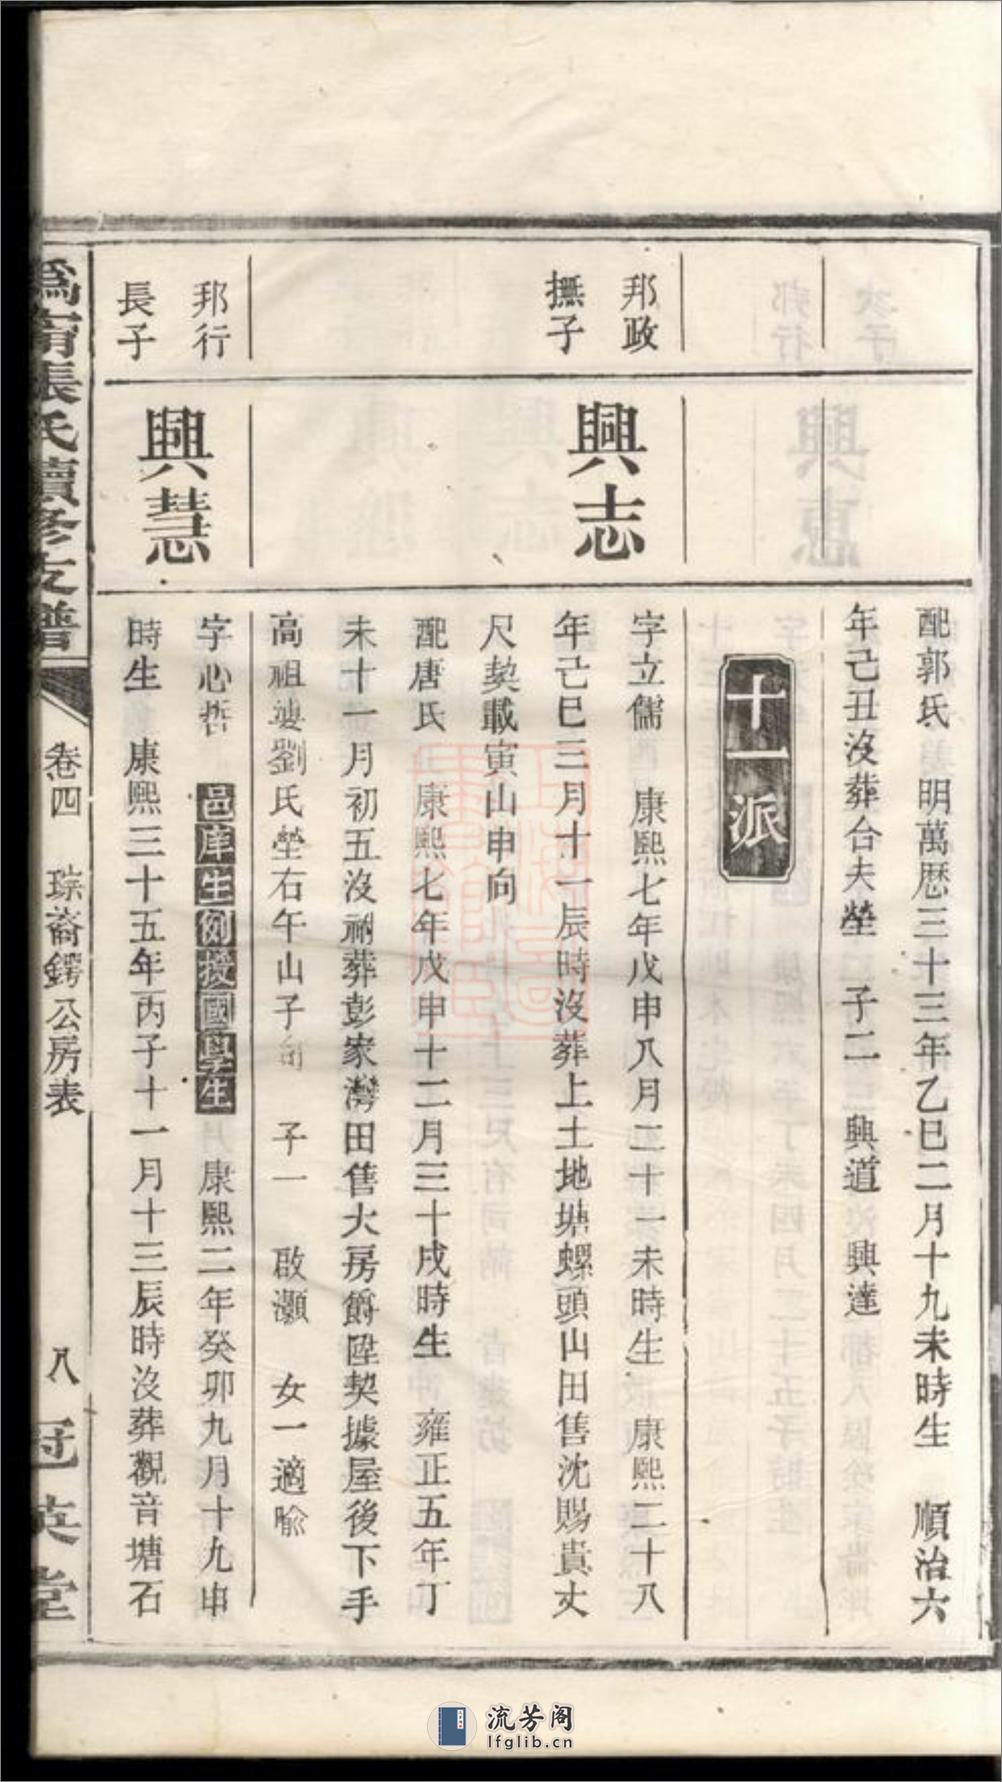 配郭氏 明萬厯三十三年乙巳二月十九未時生 順治六
年己丑沒葬合夫塋 子二 興道 興達
十一派
邦政
撫子
興志
字立儒 康熙七年戊申八月二十一未時生 康熙二十八
年己巳三月十一辰時沒葬上土地塘螺頭山田售沈賜貴丈
尺契載寅山申向
配唐氏 康熙七年戊申十二月三十戌時生 雍正五年丁
未十一月初五沒祔葬彭家灣田售大房爵陞契據屋後下手
高祖妣劉氏塋右午山子向 子一 啟灝 女一適喻
邦行
長子
興慧
字心哲 邑庠生例授國學生 康熙二年癸卯九月十九申
時生 康熙三十五年丙子十一月十三辰時沒葬觀音塘石
溈甯張氏續修支譜
卷四 琮裔鍔公房表
八 冠英堂
流芳阁
lfglib.cn